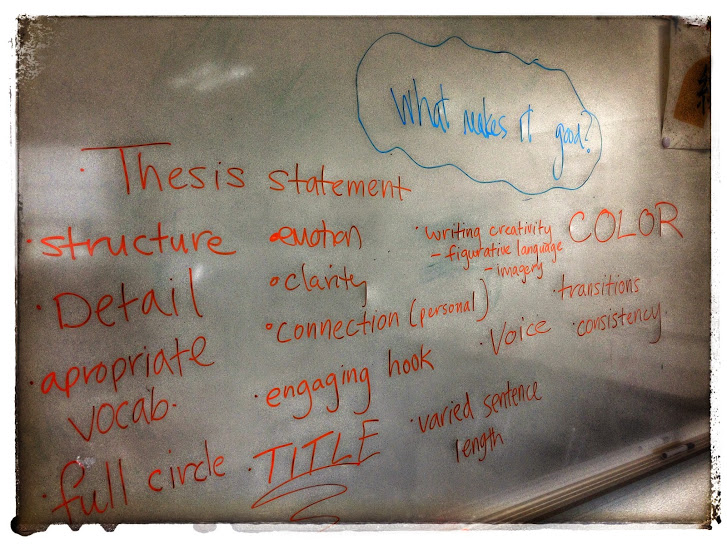 What makes it good?
· Thesis statement
· structure
· Detail
· apropriate
vocab.
· full circle
• emotion
• clarity
• connection (personal)
· engaging hook
· TITLE
· writing creativity
- figurative language
- imagery
COLOR
· transitions
· Voice
· consistency.
· varied sentence
length